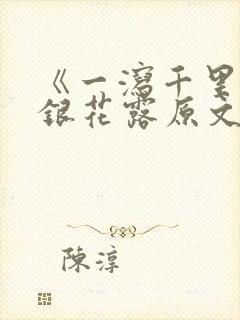 《一瀉千里
銀花露原文
陳淳